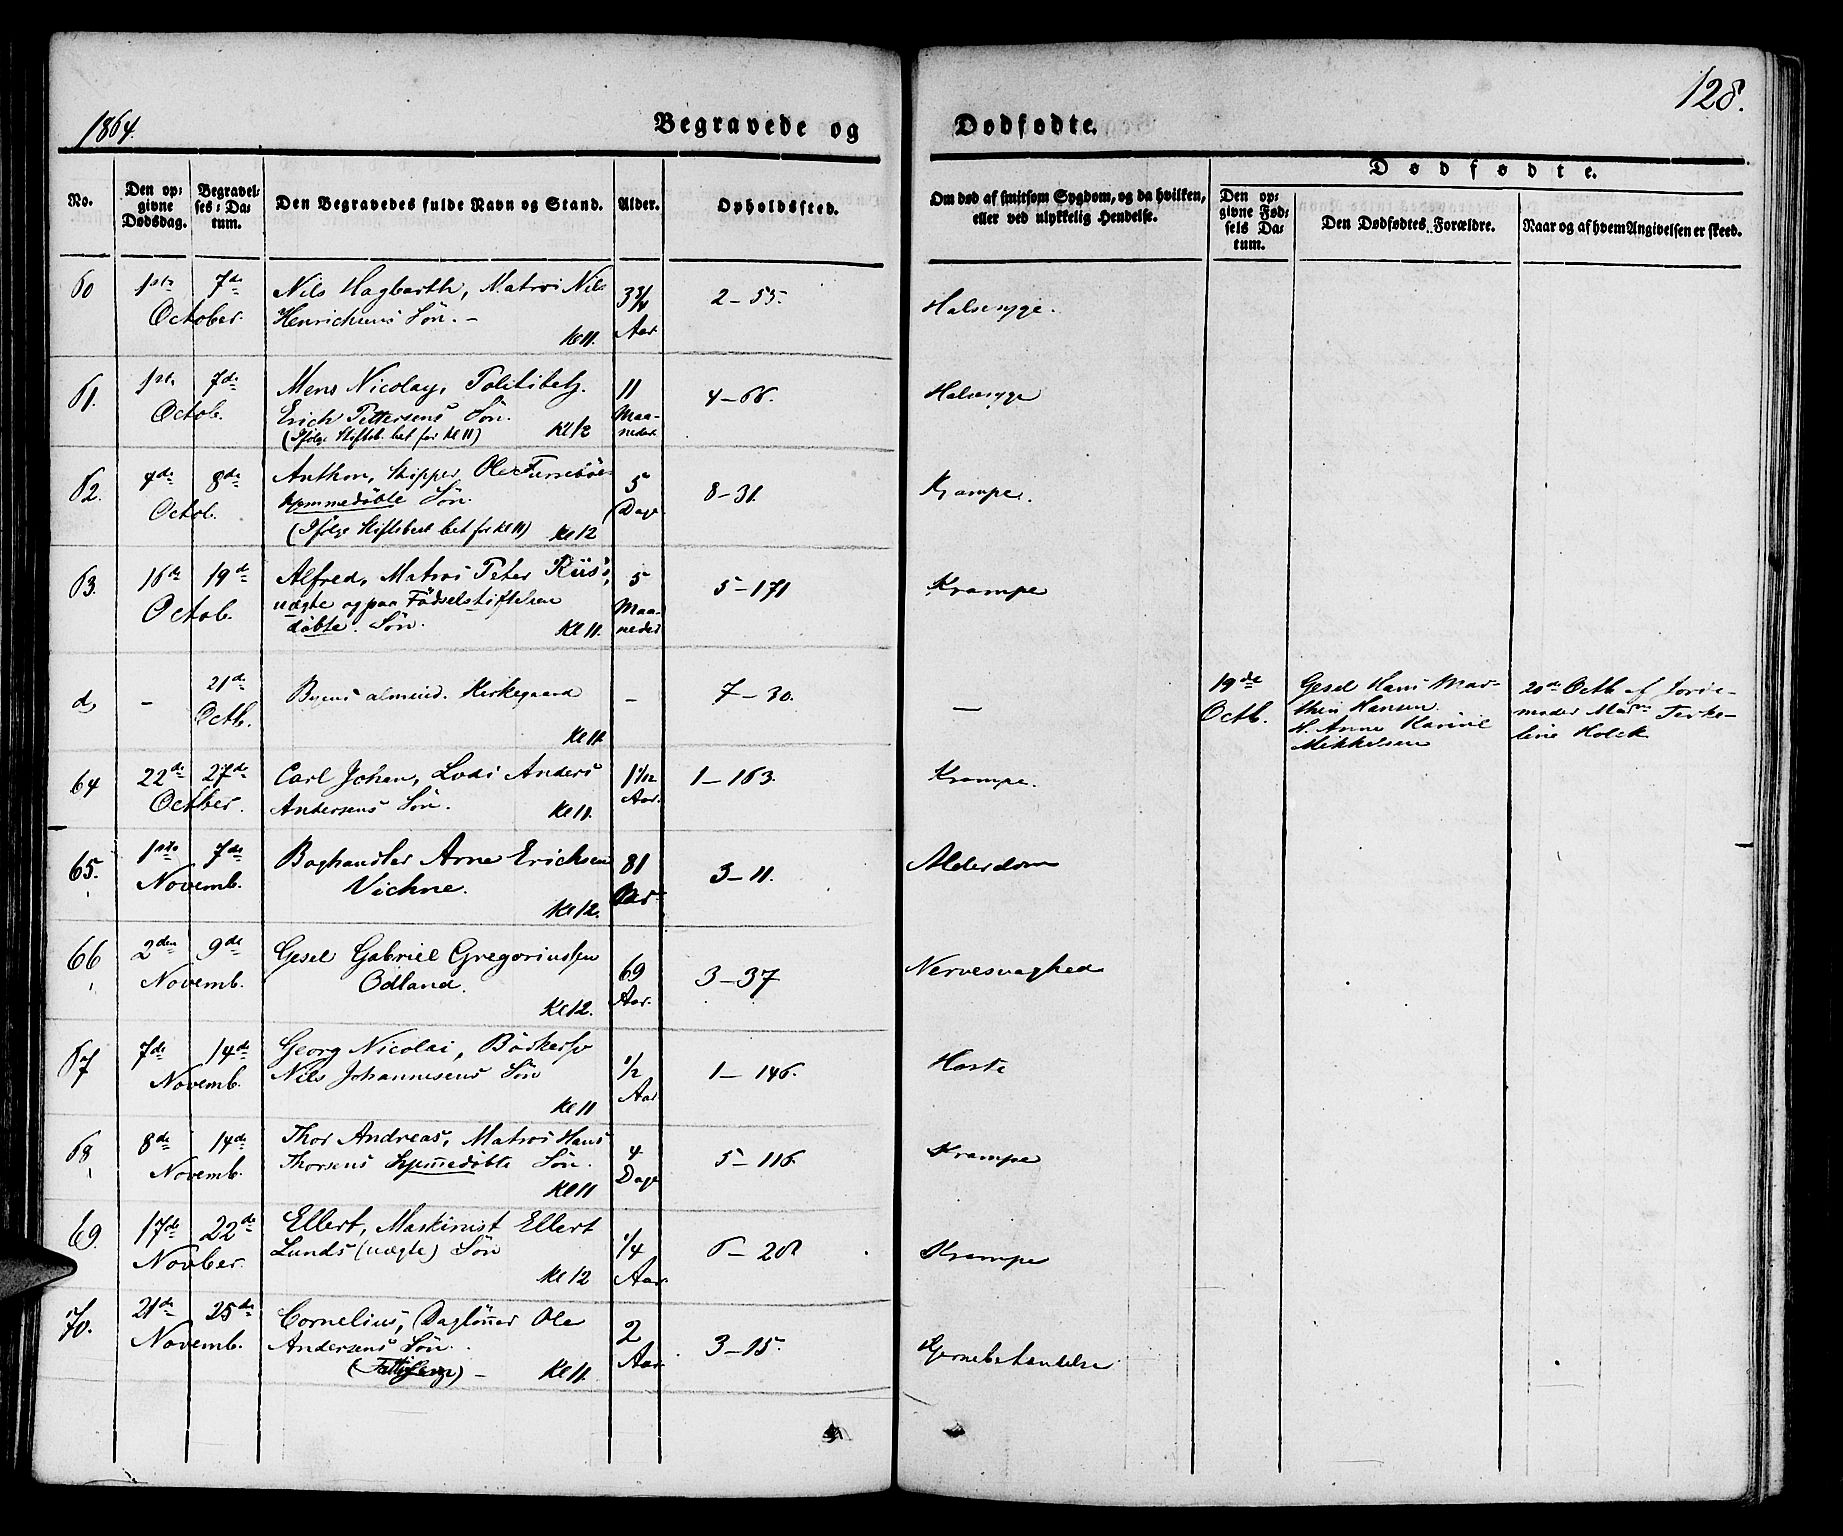 1864.
Begravede og
Dødfødte.
128.
No.
Den op-
givne
Dødsdag.
Begravel-
ses-Da-
tum.
Den Begravedes fulde Navn og Stand.
Alder.
Opholdssted.
Om død af smitsom Sygdom, og da hvilken,
eller ved ulykkelig Hendelse.
Dødfødte.
Den op-
givne Fød-
sels Da-
tum.
Den Dødfødtes Forældre.
Naar og af hvem Angivelsen er skeed.
60 1ste 7de Nils Hagbarth, Matros Nils 3 3/4 2-55. Halssyge.
October. Henrichsens Søn. - Aar
Kl 11.
61. 1ste 7de Mens Nicolay, Politibetj. 11 4-66. Halssyge
Octob. Erich Pettersens Søn. Maa-
(Ifølge Skiftsb. bet for Kl 11) Kl 12 neder
62. 4de 8de Anthon, Skipper Ole 5 8-31. Krampe.
Octob. hjemmedøbte Søn. Dage
(Ifølge bet for Kl 11) Kl 12
63. 16de 19de Alfred, Matros Peter Riis's, 5 5-171 Krampe
Octob. uægte og paa Fødselstiftelsen Maa-
døbte. Søn. Kl 11. neder
d, - 21de Byens almind. Kirkegaard - 7-30. - 19de Gesel Hans Mar- 20de Octb af Jorde-
Octb. Octb. thin Hansen. moder Terke-
Kl 11. H. Anne Karine line Holck
Mikkelsen
64 22de 27de Carl Johan, Lods Anders 1 1/12 1-163. Krampe.
Octber. Andersens Søn. Kl 11. Aar.
65. 1ste 7de Boghandler Arne Erichsen 81 3-11. Alderdom
Novemb. Vichne. Aar
Kl 12.
66 2den 9de Gesel Gabriel Gregoriussen 69 3-37 Nervesvaghed
Novemb. Odland. Aar.
Kl 12.
67 7de 14de Georg Nicolai, 1/2 1-146. Hoste
Novemb. Nils Johannesens Søn Aar
Kl 11
68 8de 14de Thor Andreas, Matros Hans 4 5-116. Krampe
Novemb. Thorsens hjemmedøbte Søn. Dage
Kl 11
69. 17de 22de Ellert, Maskinist Ellert 1/4 6-28 Krampe
Novber. Lunds (uægte) Søn Aar
Kl 12
70. 21de 25de Cornelius, Dagløner Ole 2 3-15. Hjernebetændelse
Novemb. Andersens Søn. Aar.
- Kl 11.